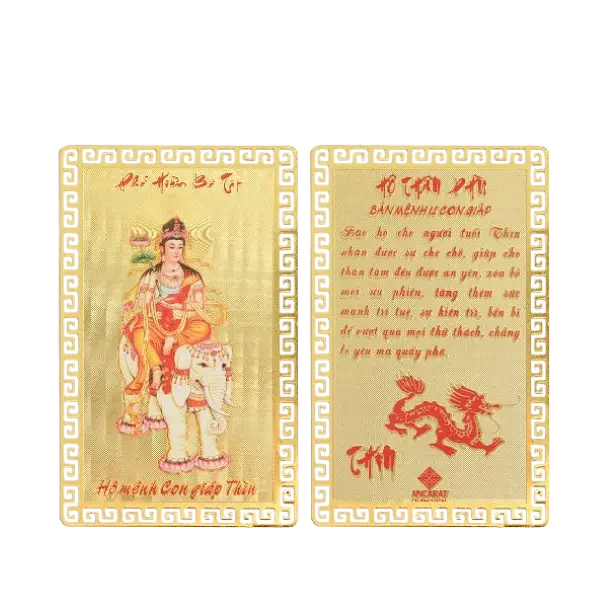 Phổ Hiền Bồ Tát
Hộ mệnh Con giáp Thìn
HỘ THÂN PHÙ
BẢN MỆNH 12 CON GIÁP
Bảo hộ cho người tuổi Thìn
nhận được sự che chở, giúp cho
thân tâm đều được an yên, xóa bỏ
mọi ưu phiền, tăng thêm sức
mạnh trí tuệ, sự kiên trì, bền bỉ
để vượt qua mọi thử thách, chẳng
lo yêu ma quấy phá.
Thìn
ANCARAT